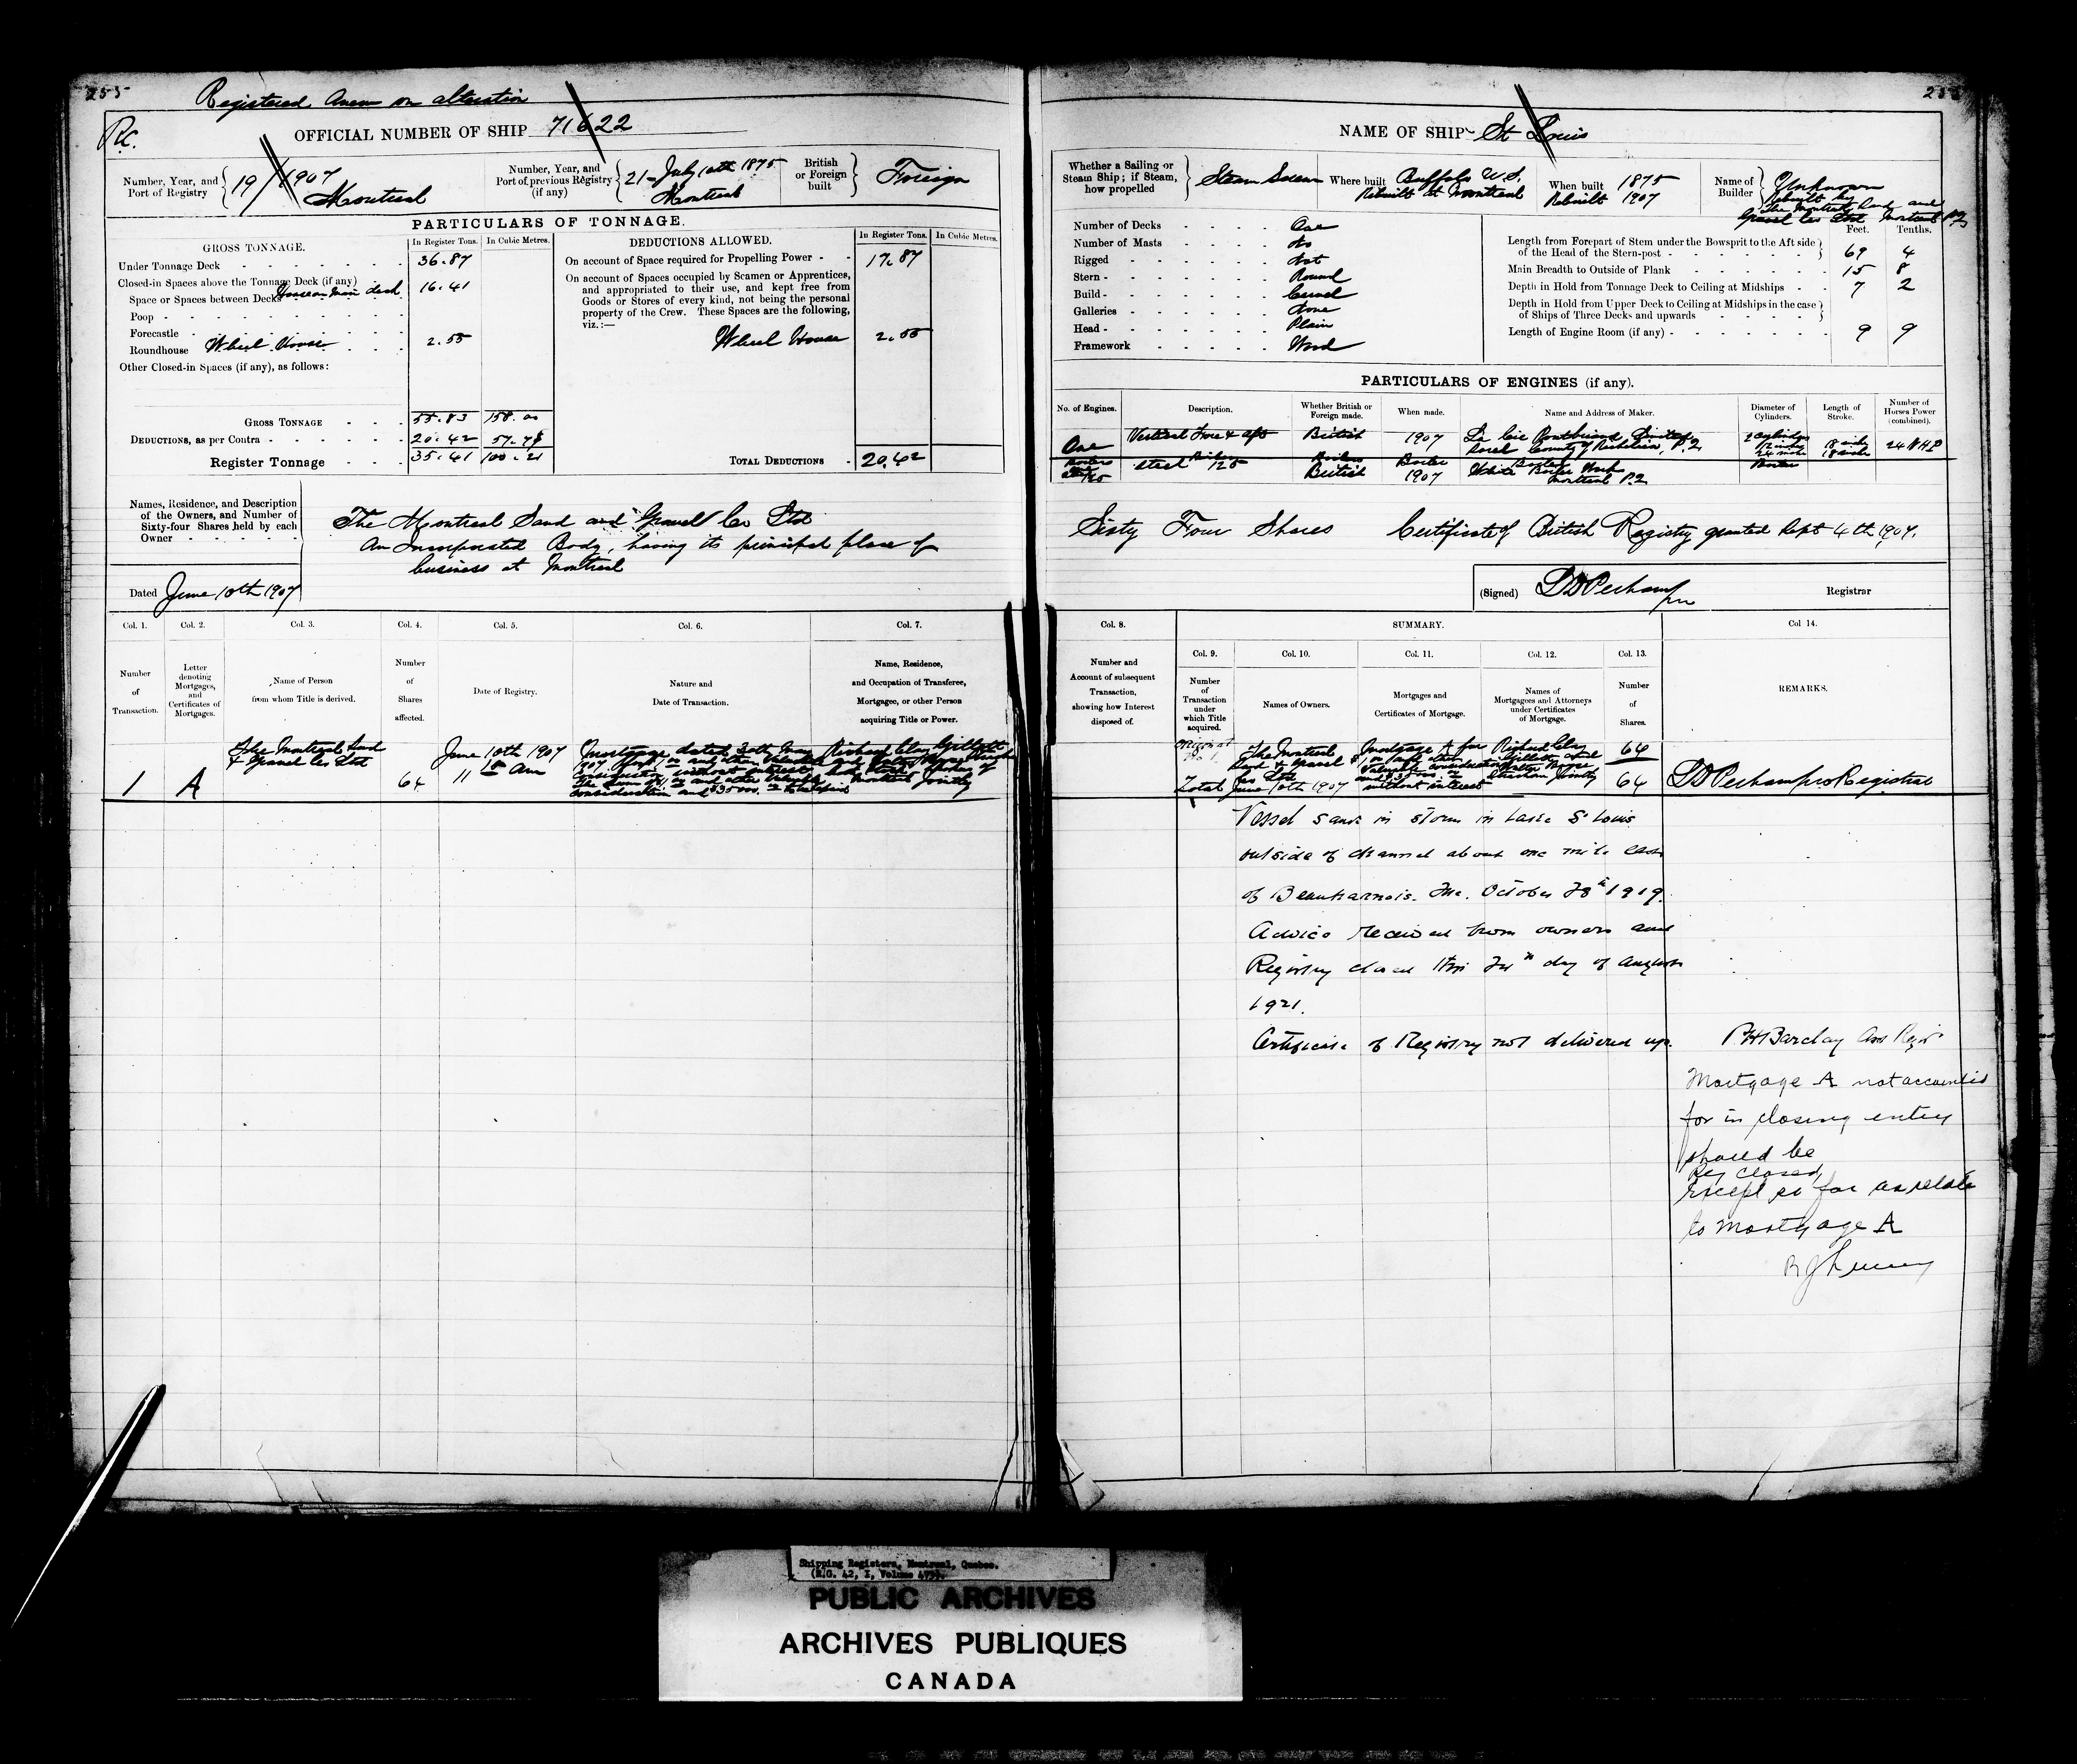 255
Registered Anew on alteration
Rc.
OFFICIAL NUMBER OF SHIP 71622
Number, Year, and Port of Registry
19/1907
Montreal
Number, Year, and Port of previous Registry (if any)
21-July 10th 1875
Montreal
British or Foreign built
Foreign
PARTICULARS OF TONNAGE.
GROSS TONNAGE.
In Register Tons.
In Cubic Metres.
Under Tonnage Deck 36.87
Closed-in Spaces above the Tonnage Deck (if any)
Space or Spaces between Decks House on Main deck 16.41
Poop
Forecastle
Roundhouse Wheel House 2.55
Other Closed-in Spaces (if any), as follows:
GROSS TONNAGE 55.83 158.00
DEDUCTIONS, as per Contra 20.42
Register Tonnage 35.41 100.21
DEDUCTIONS ALLOWED.
In Register Tons.
In Cubic Metres.
On account of Space required for Propelling Power 17.87
On account of Spaces occupied by Seamen or Apprentices,
and appropriated to their use, and kept free from
Goods or Stores of every kind, not being the personal
property of the Crew. These Spaces are the following,
viz.:—
Wheel House 2.55
TOTAL DEDUCTIONS 20.42
Names, Residence, and Description
of the Owners, and Number of
Sixty-four Shares held by each
Owner
The Montreal Sand and Gravel Co Ltd
An Incorporated Body, having its principal place of
business at Montreal
Dated June 10th 1907
Col. 1.
Number of Transaction.
Col. 2.
Letter denoting Mortgages, and Certificates of Mortgages.
Col. 3.
Name of Person from whom Title is derived.
Col. 4.
Number of Shares affected.
Col. 5.
Date of Registry.
Col. 6.
Nature and Date of Transaction.
Col. 7.
Name, Residence, and Occupation of Transferee, Mortgagee, or other Person acquiring Title or Power.
1
A
The Montreal Sand
& Gravel Co Ltd
64
June 10th 1907
11 am
Mortgage dated 30th May
1907
without interest
Richard Clay Gillett
Montreal Jointly
NAME OF SHIP St Louis
Whether a Sailing or Steam Ship; if Steam, how propelled
Steam Screw
Where built
Buffalo U.S.
Rebuilt at Montreal
When built 1875
Rebuilt 1907
Name of Builder
Unknown
Rebuilt by
The Montreal Sand and
Gravel Co Ltd Montreal P.Q.
Number of Decks One
Number of Masts No
Rigged Not
Stern Round
Build Carvel
Galleries None
Head Plain
Framework Wood
Feet. Tenths.
Length from Forepart of Stem under the Bowsprit to the Aft side
of the Head of the Stern-post 69 4
Main Breadth to Outside of Plank 15 8
Depth in Hold from Tonnage Deck to Ceiling at Midships 7 2
Depth in Hold from Upper Deck to Ceiling at Midships in the case
of Ships of Three Decks and upwards
Length of Engine Room (if any) 9 9
PARTICULARS OF ENGINES (if any).
No. of Engines.
Description.
Whether British or Foreign made.
When made.
Name and Address of Maker.
Diameter of Cylinders.
Length of Stroke.
Number of Horses Power (combined).
One
Vertical Fore & aft
British
1907
La Cie Pontbriand Limitée
Sorel County of Richelieu, P.Q.
2 cylinders
12 inch
24 inch
18 inch
18 inch
24 NHP
Steel 125
Boilers
British
Boiler
1907
White Boiler Works
Montreal P.Q.
Sixty Four Shares
Certificate of British Registry granted Sept 4th 1907.
(Signed)
Registrar
Col. 8.
Number and Account of subsequent Transaction, showing how Interest disposed of.
SUMMARY.
Col. 9.
Number of Transaction under which Title acquired.
Col. 10.
Names of Owners.
Col. 11.
Mortgages and Certificates of Mortgage.
Col. 12.
Names of Mortgagees and Attorneys under Certificates of Mortgage.
Col. 13.
Number of Shares.
Col 14.
REMARKS.
The Montreal
Sand & Gravel
Co Ltd
Total June 10th 1907
Mortgage A for
without interest
Richard Clay
Gillett and
Jointly
64
64
Registrar
Vessel sank in storm in Lake St Louis
outside of channel about one mile east
of Beauharnois. Que. October 28th 1919.
Advice received from owners and
Registry closed this day of August
1921.
Certificate of Registry not delivered up.
Barclay
Mortgage A not accounted
for in closing entry
should be
Reg closed
except so far as relate
to mortgage A
Shipping Registers, Montreal, Quebec.
(R.G. 42, I, Volume
PUBLIC ARCHIVES
ARCHIVES PUBLIQUES
CANADA